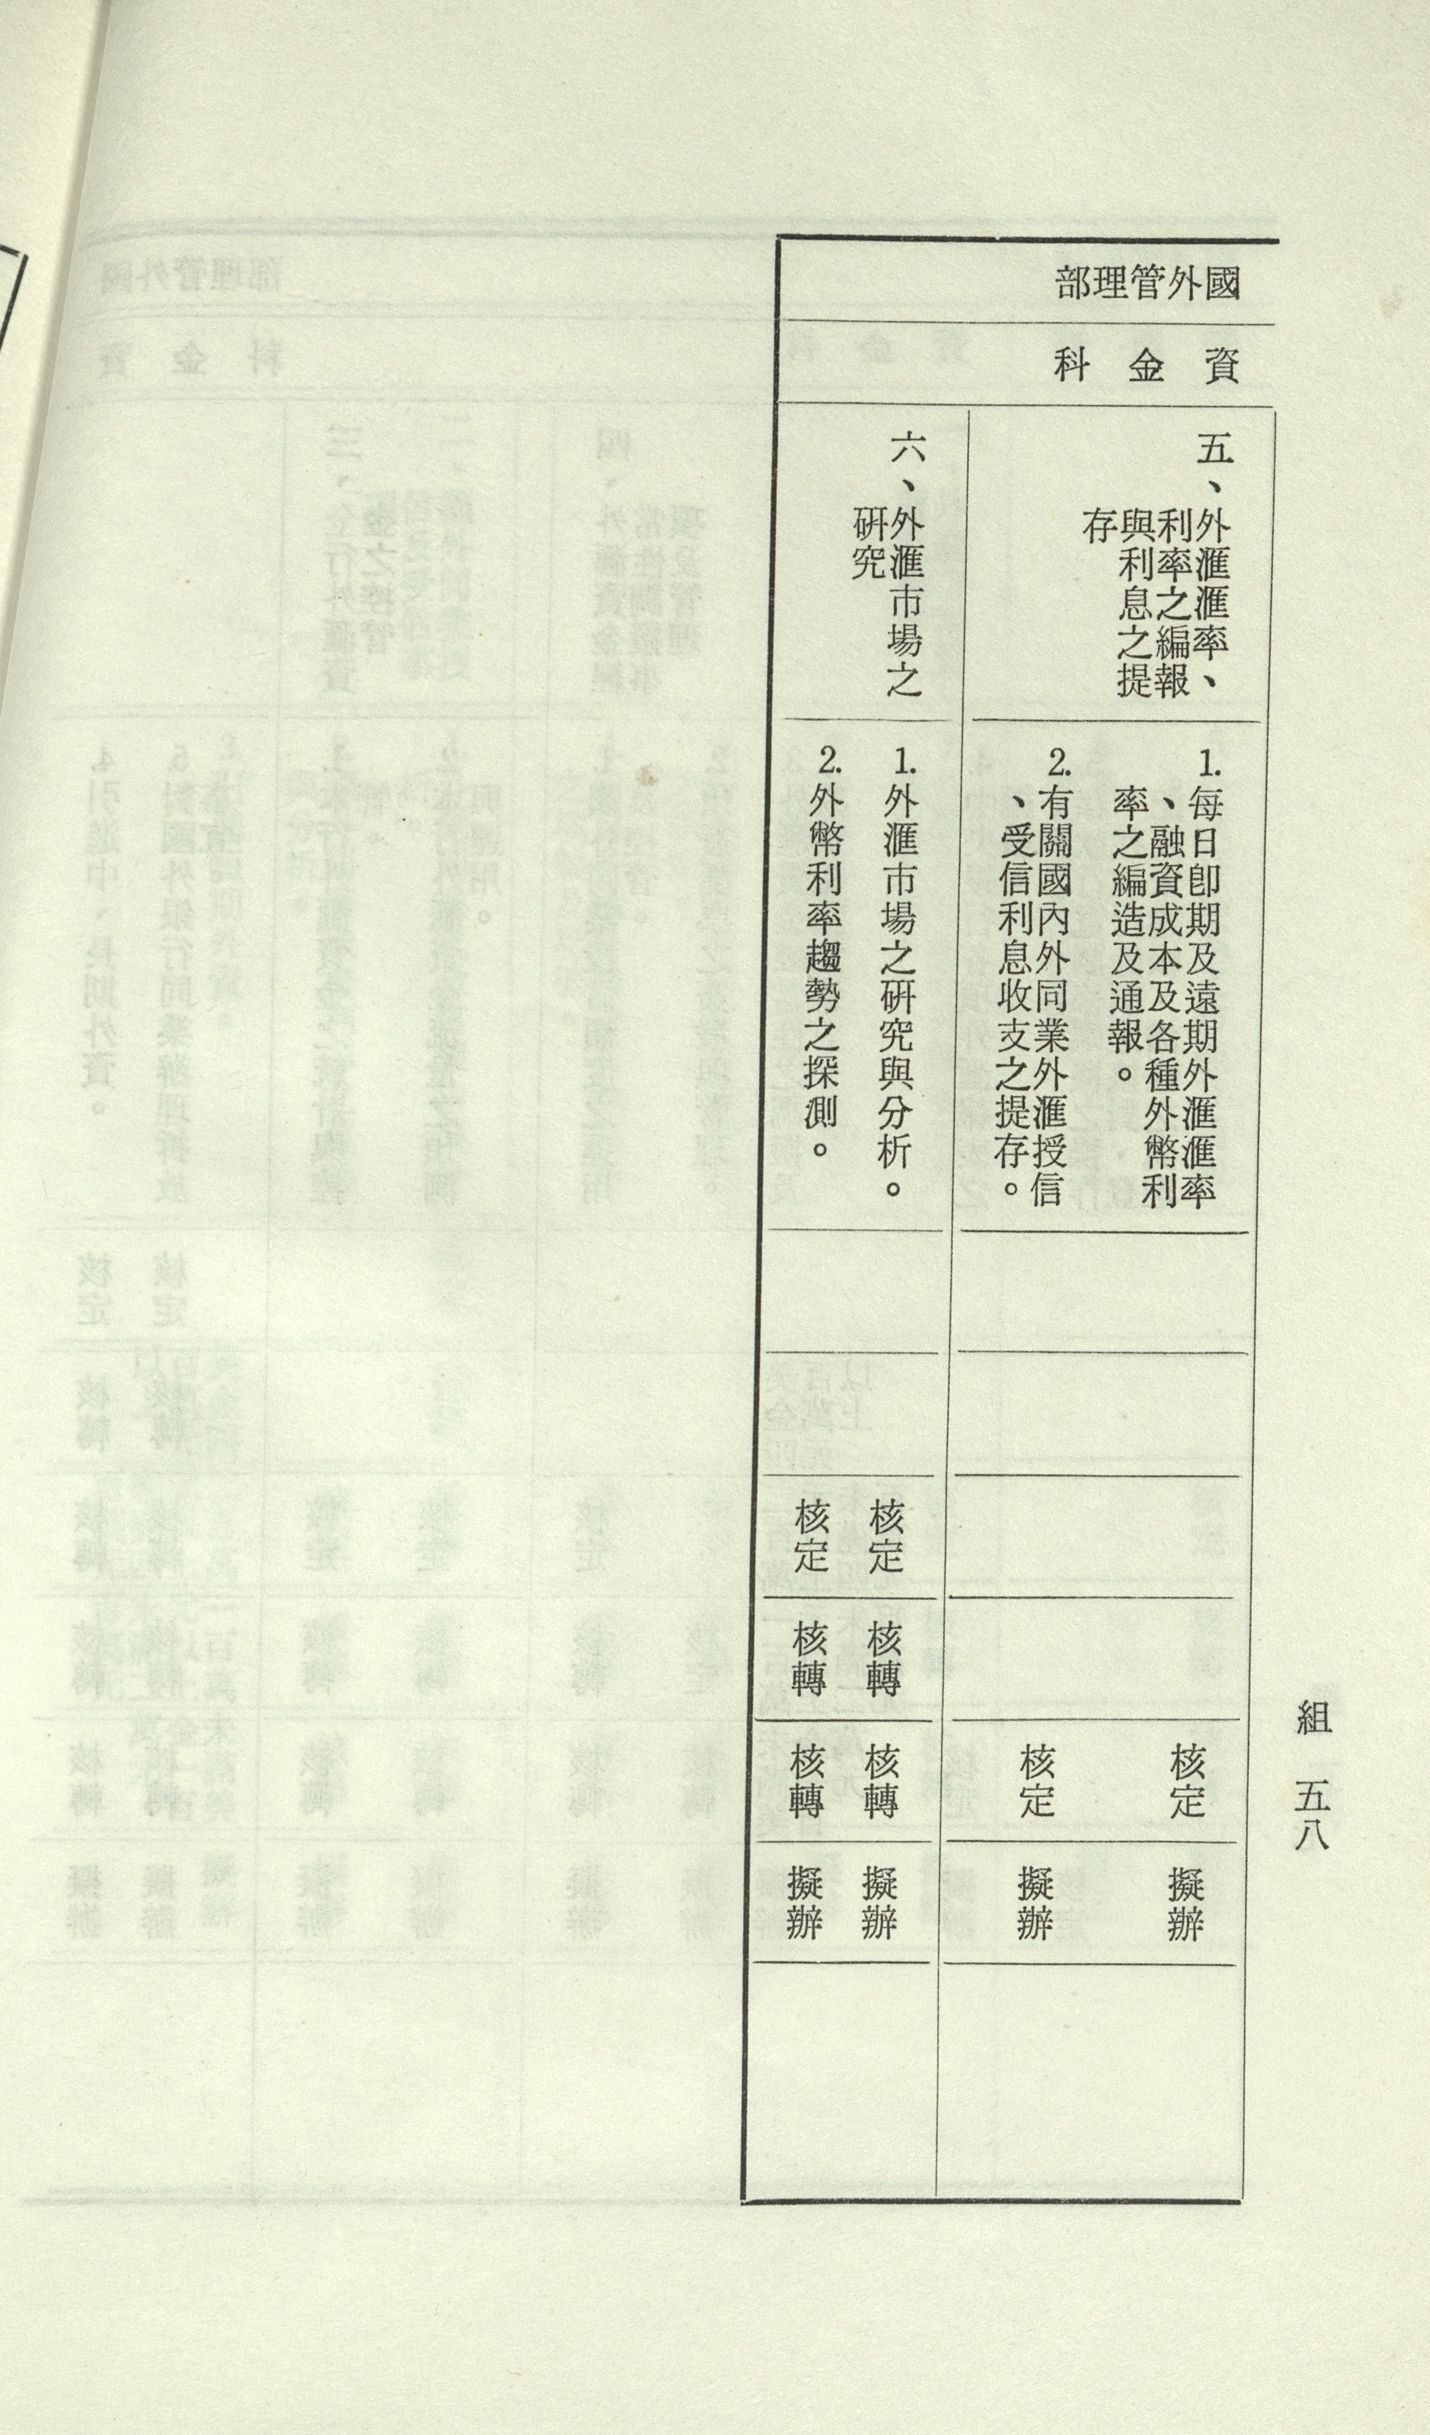 國外管理部
資金科
五、外滙滙率、
利率之編報
與利息之提
存
1.每日卽期及遠期外滙滙率
、融資成本及各種外幣利
率之編造及通報。
核定
擬辦
2.有關國內外同業外滙授信
、受信利息收支之提存。
核定
擬辦
六、外滙市場之
硏究
1.外滙市場之硏究與分析。
核定
核轉
核轉
擬辦
2.外幣利率趨勢之探測。
核定
核轉
核轉
擬辦
組 五八